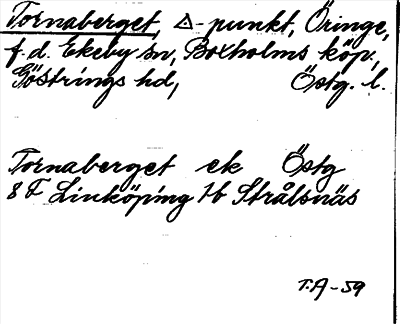 Tornaberget, △-punkt, Öringe,
f.d. Ekeby sn, Boxholms köp,
Göstrings hd, Östg. l.
Tornaberget ek Östg
8 F Linköping 7b Strålsnäs
T.A-59